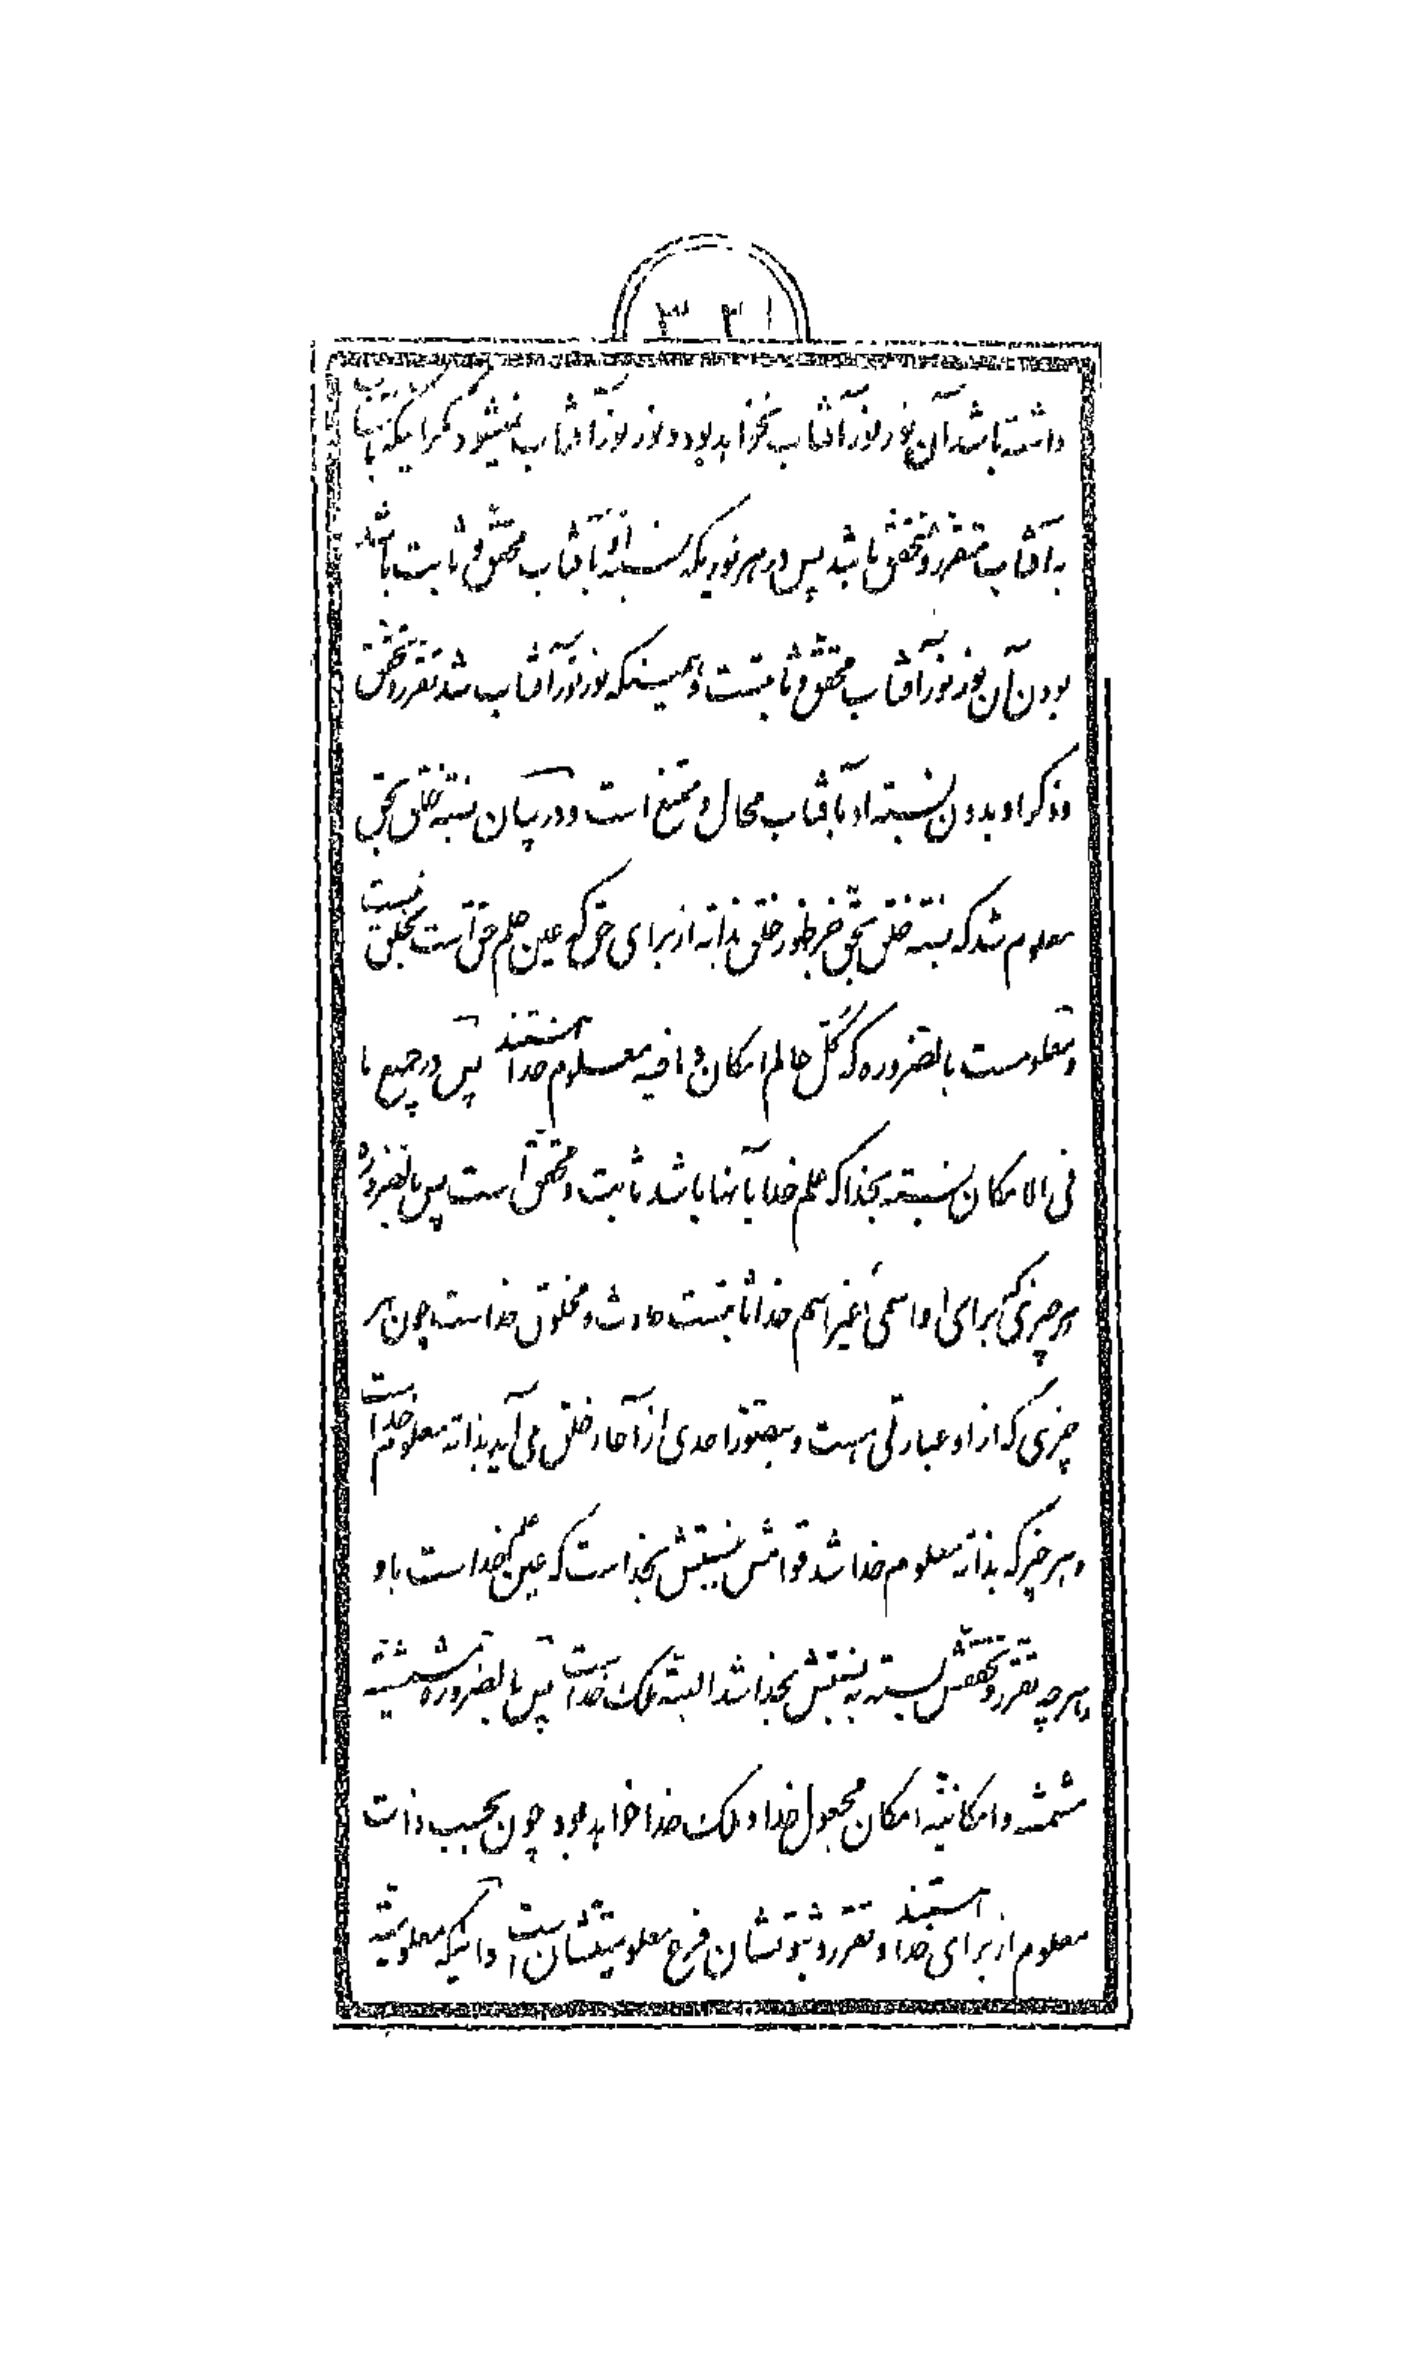 ۱۳۳
داشته باشد آن نور نور آفتاب نخواهد بود و نور نور آفتاب نمیشود مگر اینکه بانتساب
به آفتاب متقرر و متحقق باشد پس در هر نوریکه نسبته او بآفتاب محقق و ثابت باشد
بودن آن نور نور آفتاب محقق و ثابتست و همینکه نور نور آفتاب شد تقرر و تحقق
و ذکر او بدون نسبته او بآفتاب محال و ممتنع است و در بیان نسبته خلق بحق
معلوم شد که نسبته خلق بحق خبر ظهور خلق بذاته از برای حق که عین علم حق است بخلق نیست
و معلومست بالضروره که کلّ عالم امکان و ما فیه معلوم خدا هستند پس در جمیع ما
فی الامکان نسبته بخدا که علم خدا بآنها باشد ثابت و متحقق است پس بالضروره
هر چیزی که برای او اسمی غیر اسم خدا ثابتست حادث و مخلوق خداست چون هر
چیزی که از او عبارتی هست و بتصور احدی از آحاد خلق می آید بذاته معلوم خدا است
و هر چیز که بذاته معلوم خدا شد قوامش نسبتش بخداست که عین علم خداست باو
و هر چه تقرر و تحققش بسته به نسبتش بخدا شد البته ملک خدا است پس بالضروره مشیّئیّته
مشیّته و امکانیّته امکان مجعول خدا و ملک خدا خواهد بود چون بحسب ذات
معلوم از برای خدا هستند و تقرر و ثبوتشان فرع معلومیتشان است و اینکه معلومیّته